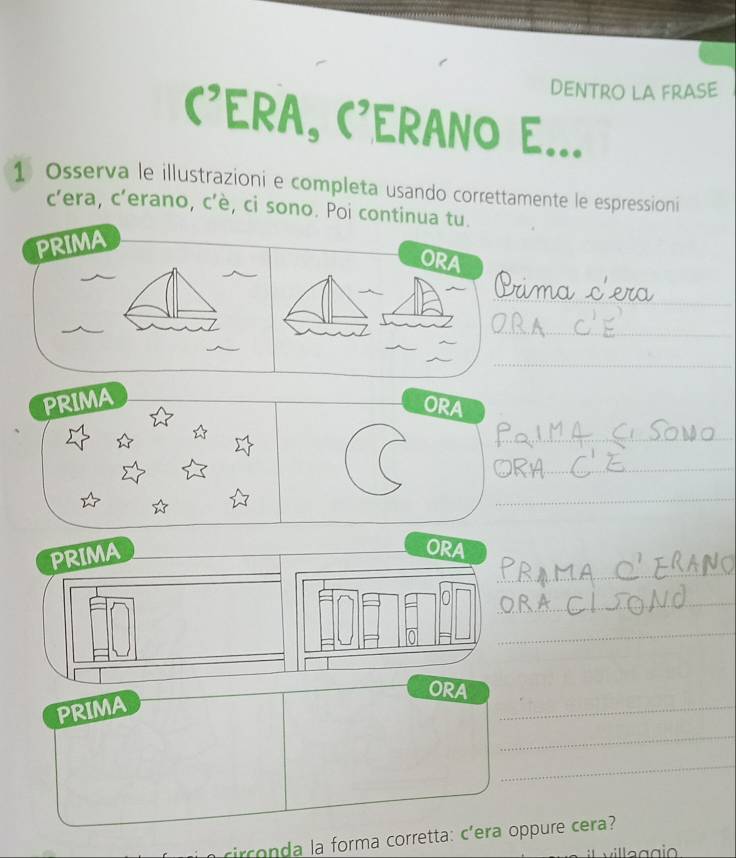 DENTRO LA FRASE
C'ERA, C'ERANO E...
1 Osserva le illustrazioni e completa usando correttamente le espressioni
c'era, c'erano, c'è, ci sono. Poi continua tu.
PRIMA
ORA
Prima c'era
ORA C'E'
PRIMA
ORA
PRIMA CI SONO
ORA C'È
PRIMA
ORA
PRAMA C'ERANO
ORA CI SONO
PRIMA
ORA
circonda la forma corretta: c'era oppure cera?
il villaggio